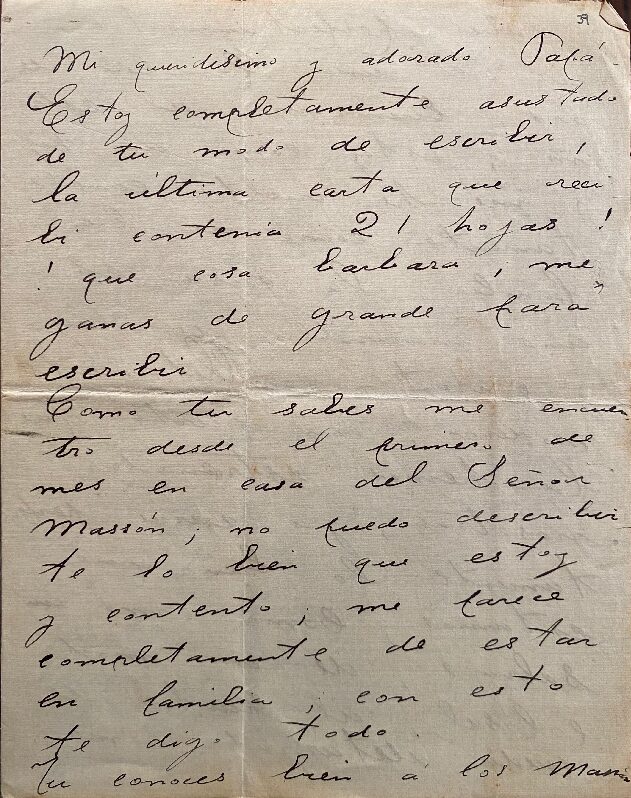 39
Mi queridisimo y adorado Papá.
Estoy completamente asustado
de tu modo de escribir,
la última carta que reci
bi contenia 21 hojas!
! que cosa barbara, me
ganas de grande para
escribir
Como tu sabes me encuen
tro desde el primero de
mes en casa del Señor
Massón, no puedo describir
te lo bien que estoy
y contento, me parece
completamente de estar
en familia, con esto
te digo todo.
Tu conoces bien á los Massón